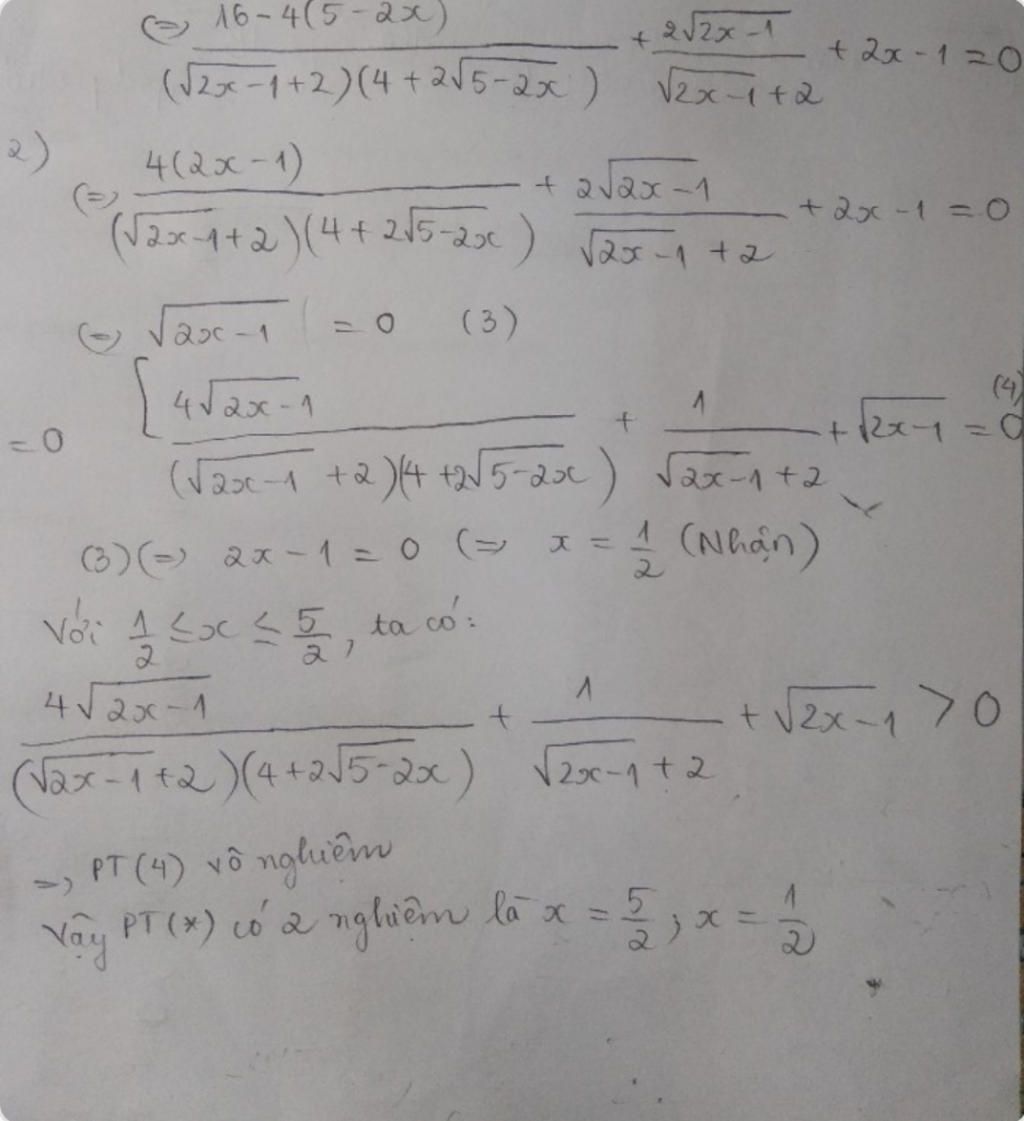 (=) 16-4(5-2x) / (√2x-1+2)(4+2√5-2x) + 2√2x-1 / √2x-1+2 + 2x-1=0
2)
(=) 4(2x-1) / (√2x-1+2)(4+2√5-2x) + 2√2x-1 / √2x-1+2 + 2x-1=0
(=) √2x-1 = 0 (3)
=0 [ 4√2x-1 / (√2x-1+2)(4+2√5-2x) + 1 / √2x-1+2 + √2x-1 = 0 (4)
(3) (=) 2x-1=0 (=) x = 1/2 (Nhận)
Với 1/2 ≤ x ≤ 5/2, ta có:
4√2x-1 / (√2x-1+2)(4+2√5-2x) + 1 / √2x-1+2 + √2x-1 > 0
=> PT(4) vô nghiêm
Vậy PT(*) có 2 nghiêm là x = 5/2; x = 1/2